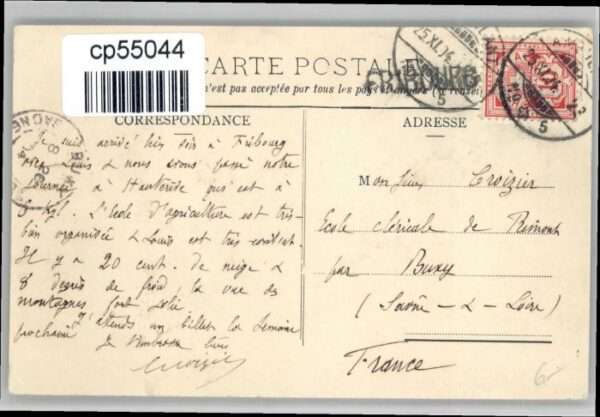 cp55044
CARTE POSTALE
n'est pas acceptée par tous les pays
CORRESPONDANCE
ADRESSE
Je suis arrivé hier soir à Fribourg
chez Louis & nous avons passé notre
journée à Hauterive qui est à
6 kil. L'école d'agriculture est très
bien organisée & Louis est très content.
Il y a 20 cent. de neige &
8 degrés de froid, la vue des
montagnes
J'attends un billet la semaine
prochaine
Croizier
Monsieur Croizier
Ecole cléricale de Rimont
par Buxy
(Saône-&-Loire)
France
5
5
6-